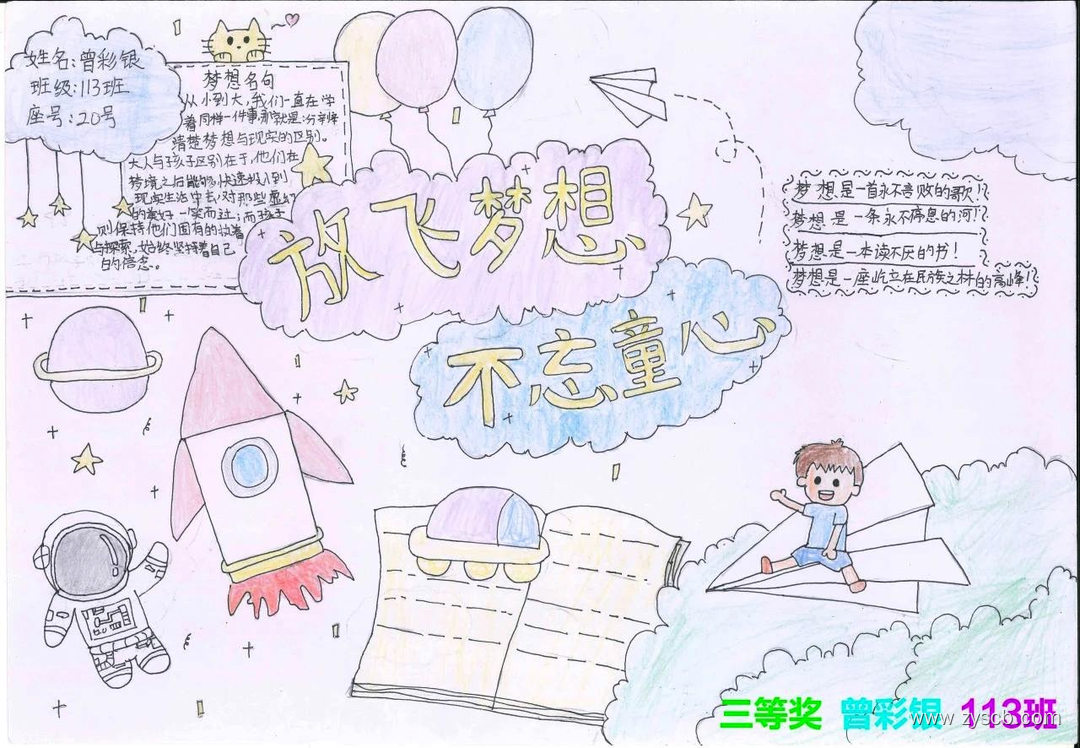 姓名:曾彩银
班级:113班
座号:20号
梦想名句
从小到大,我们一直在学
着同样一件事,那就是:分辛楼
清楚梦想与现实的区别。
大人与子孩子区别在于,他们在
梦境之后能够快速投入到
现实生活中去,对那些虚幻
的美好一笑而过;而孩子
则保持他们固有的执着
与探索,始终坚持着自己
的信念。
放飞梦想
不忘童心
梦想是一首永不言败的歌!
梦想是一条永不停息的河!
梦想是一本读不厌的书!
梦想是一座屹立在民族之林的高峰!
三等奖 曾彩银 113班
www.zyscb.com